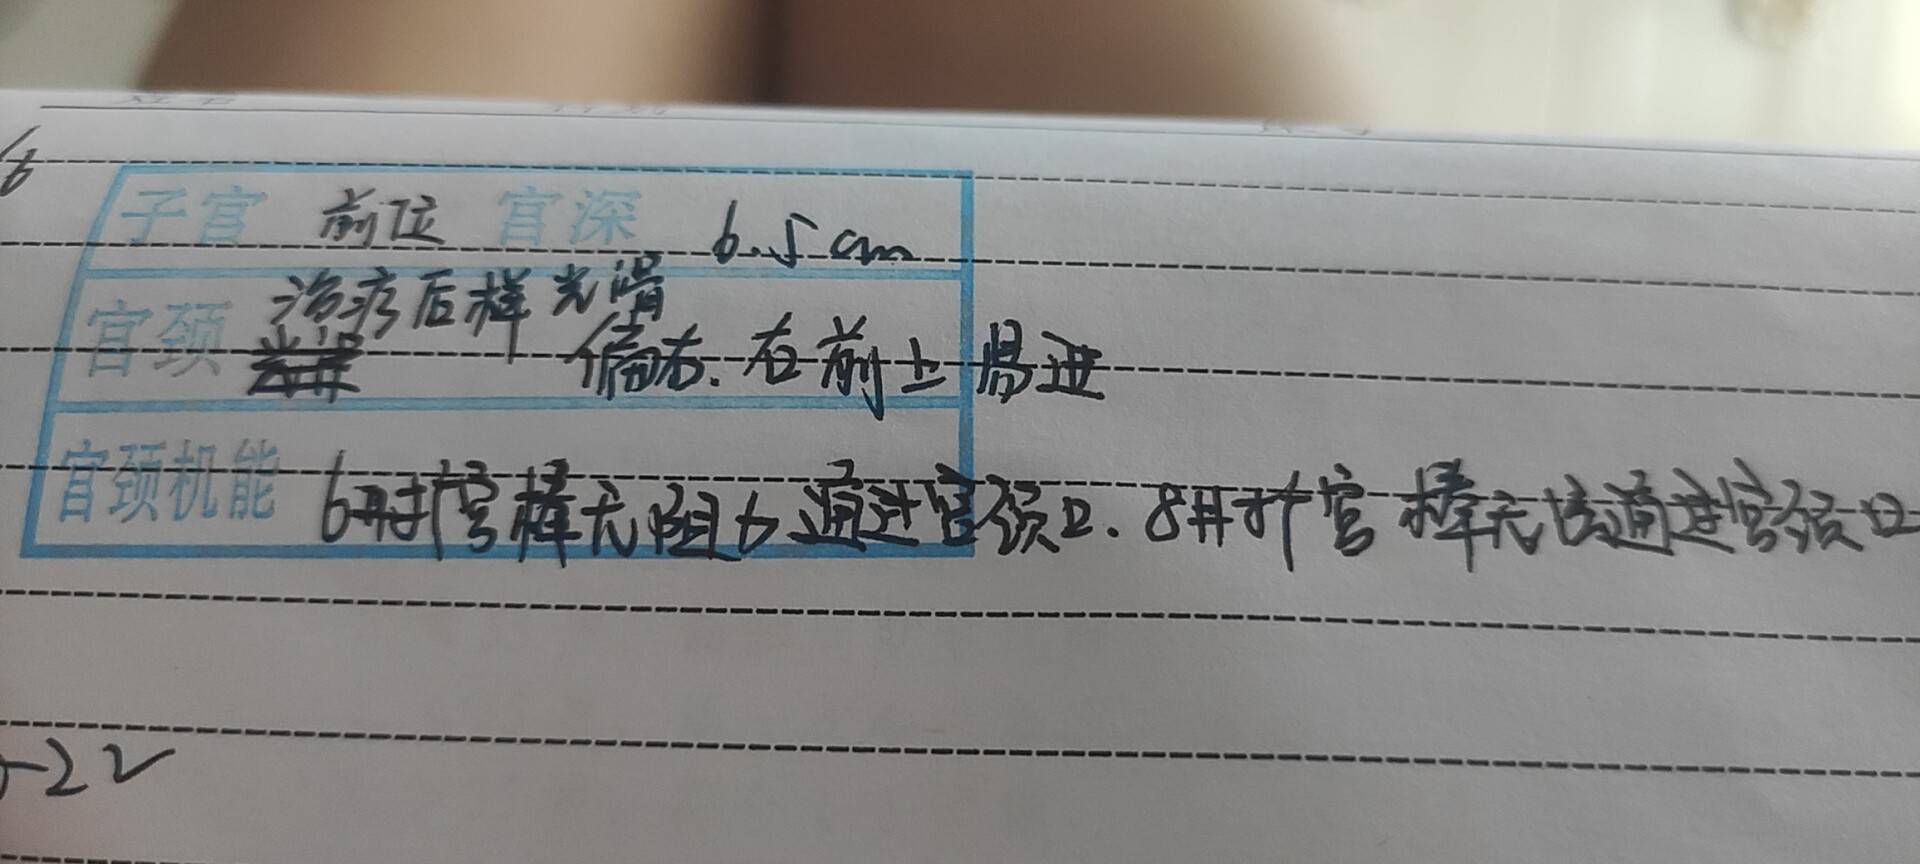 子宫 前位 宫深 6.5cm
宫颈 治疗后样光滑
偏右.右前上易进
宫颈机能 6号扩宫棒无阻力通过宫颈口.8号扩宫棒无法通过宫颈口
-22